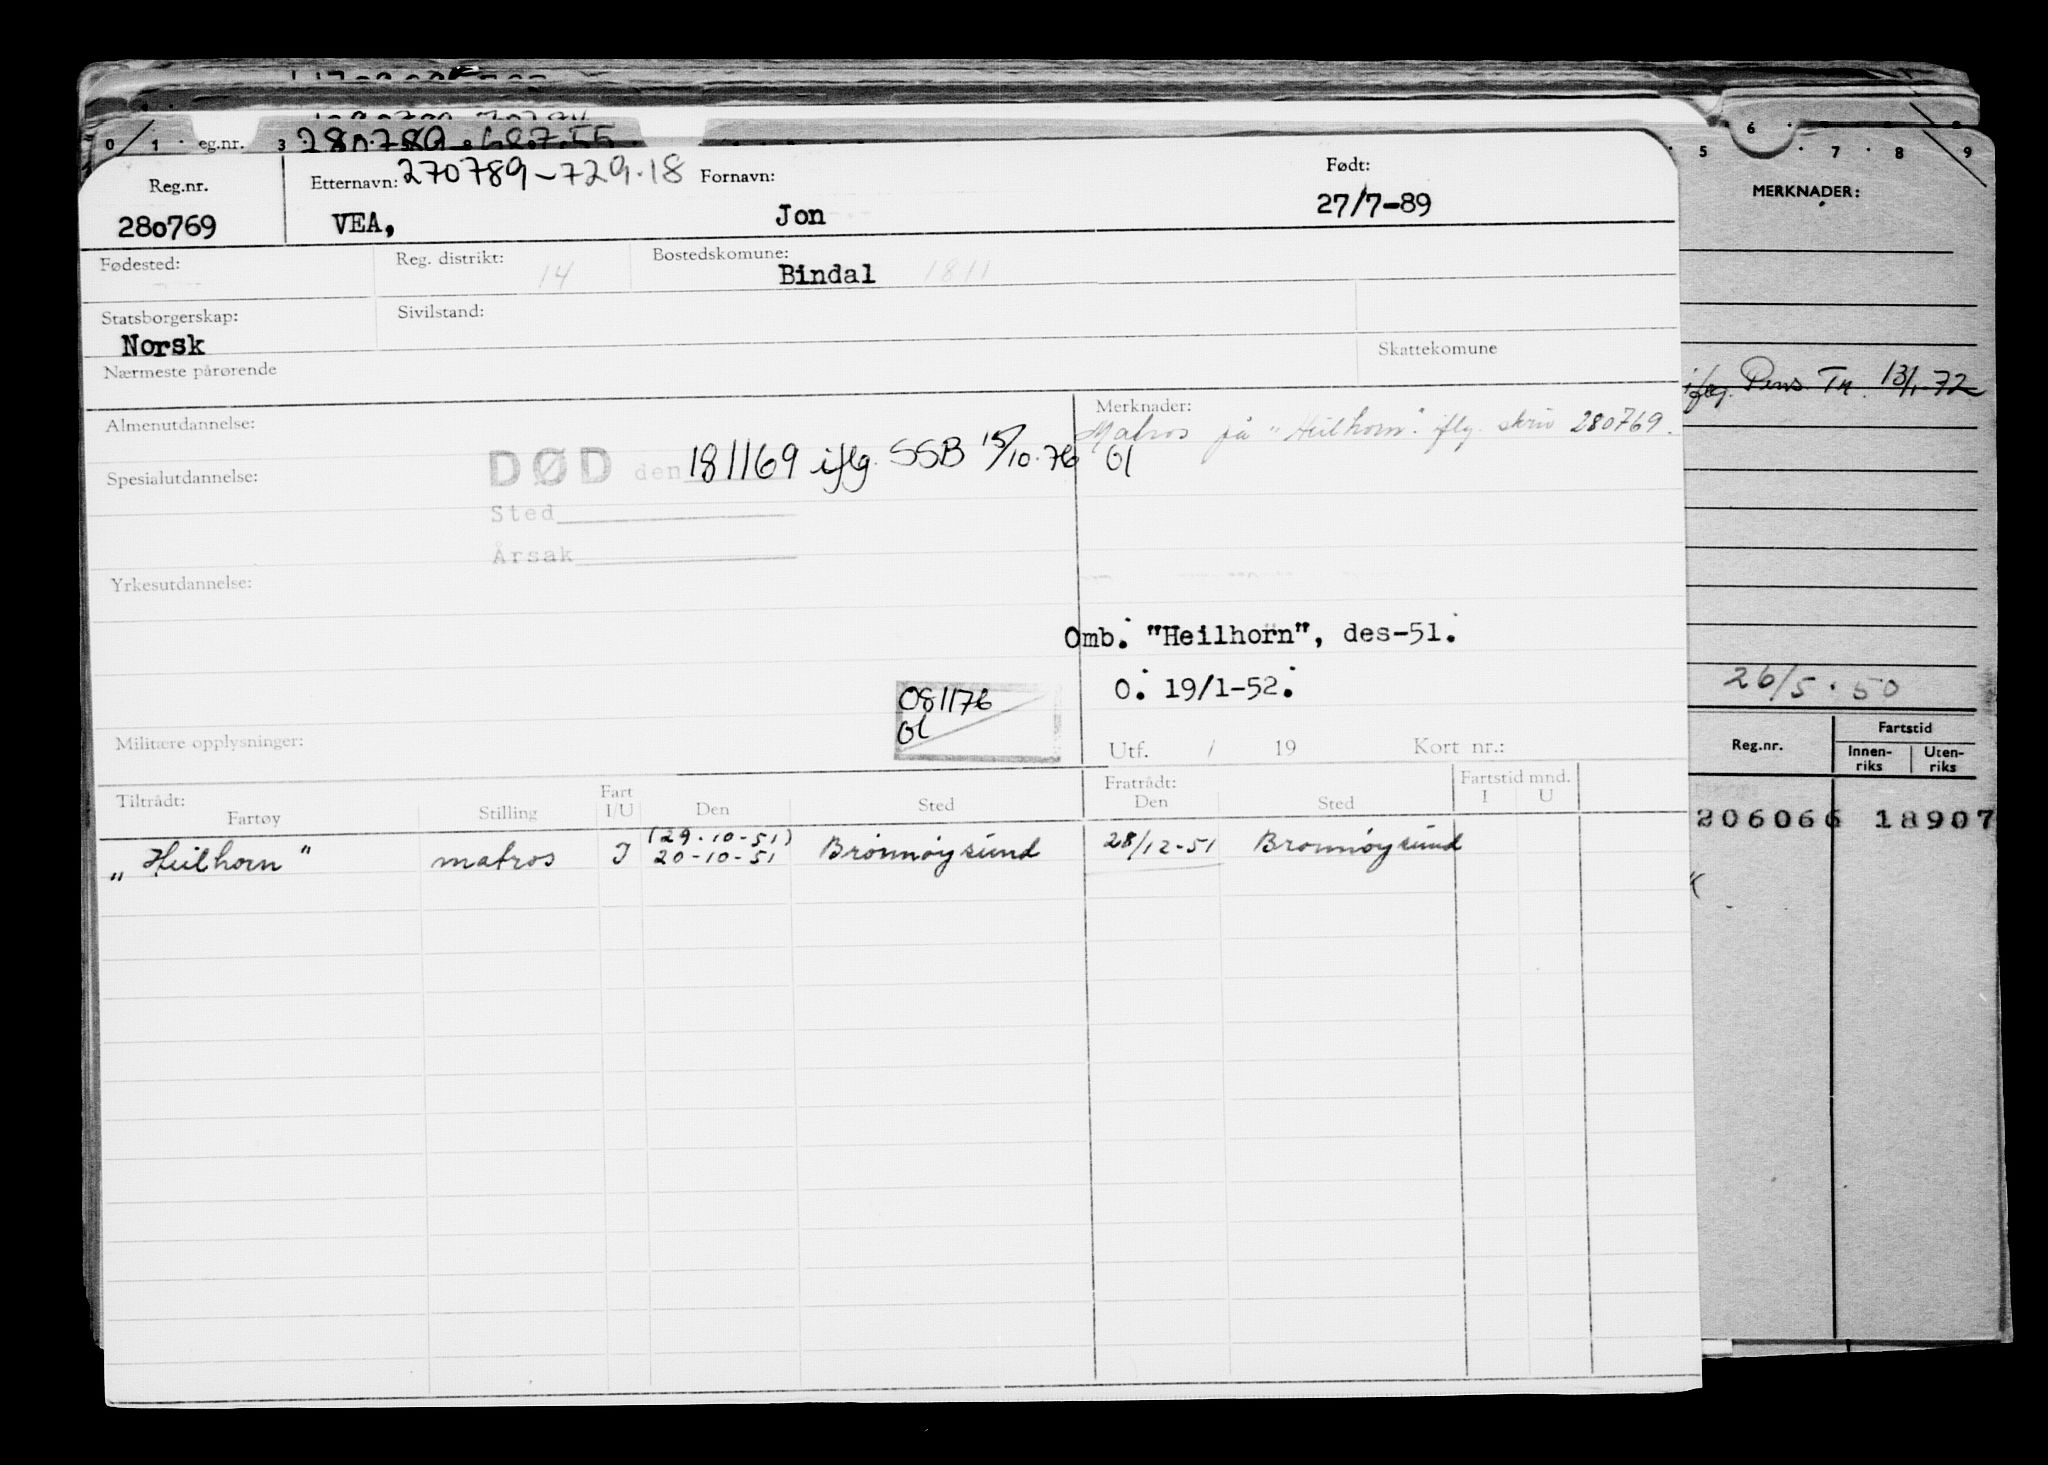 0 1 eg.nr. 3 280789
Reg.nr. Etternavn: 270789-729.18 Fornavn: Født:
280769 VEA, Jon 27/7-89
Fødested: Reg. distrikt: 14 Bostedskomune: Bindal 1811
Statsborgerskap: Sivilstand:
Norsk
Nærmeste pårørende Skattekomune
Almenutdannelse: Merknader:
Matros på "Heilhorn". iflg. skriv 280769.
Spesialutdannelse: DØD den 181169 iflg. SSB 15/10.76 Gl
Sted
Årsak
Yrkesutdannelse:
Omb. "Heilhorn", des-51.
O. 19/1-52.
081176
Gl
Militære opplysninger: Utf. / 19 Kort nr.:
Tiltrådt: Fart Fratrådt: Fartstid mnd.
Fartøy Stilling I/U Den Sted Den Sted I U
(29.10-51)
"Heilhorn" matros I 20-10-51 Brønnøysund 28/12-51 Brønnøysund
5 6 7 8 9
MERKNADER:
iflg. Pens. Tr. 13/1-72
26/5.50
Reg.nr. Fartstid
Innen-riks Uten-riks
206066 18907